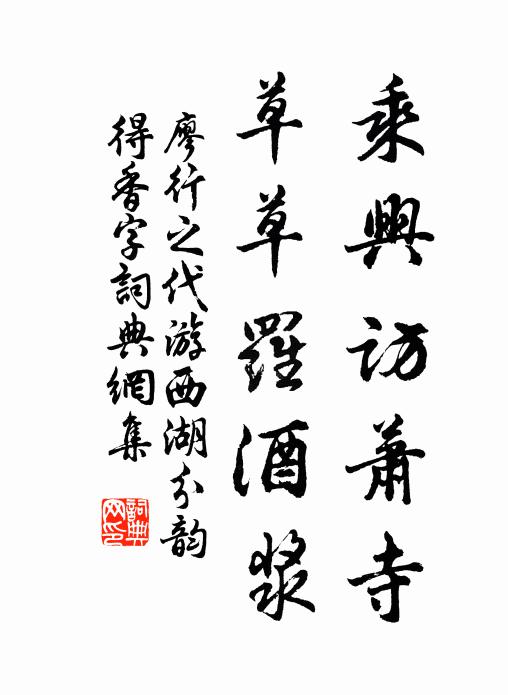 乘興訪蕭寺
草草羅酒漿
廖行之代游西湖分韵
得香字詞典網集
詞典網印